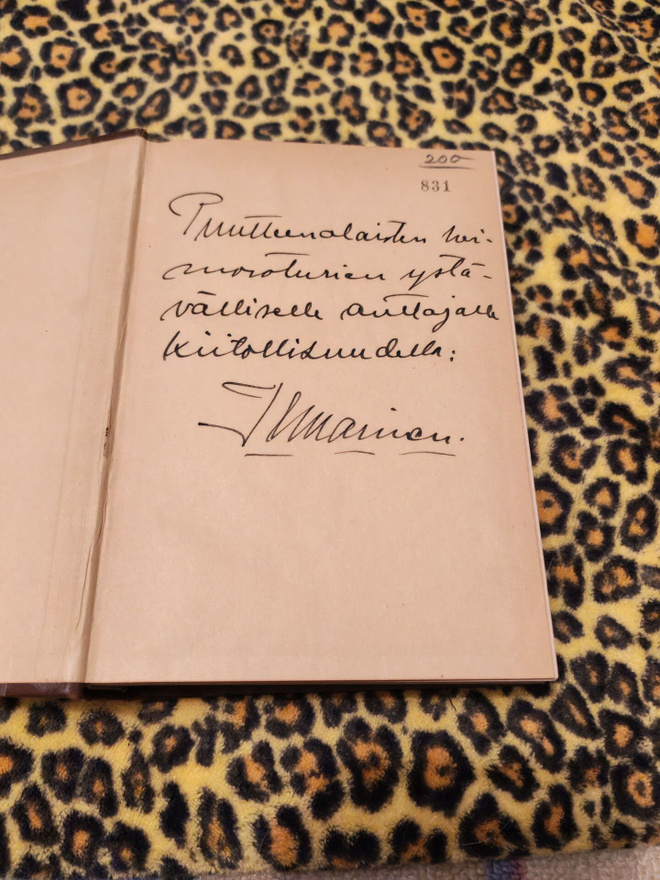 200
831
Puutteenalaisten hei-
mosoturien ystä-
välliselle auttajalle
kiitollisuudella:
Ilmarinen.